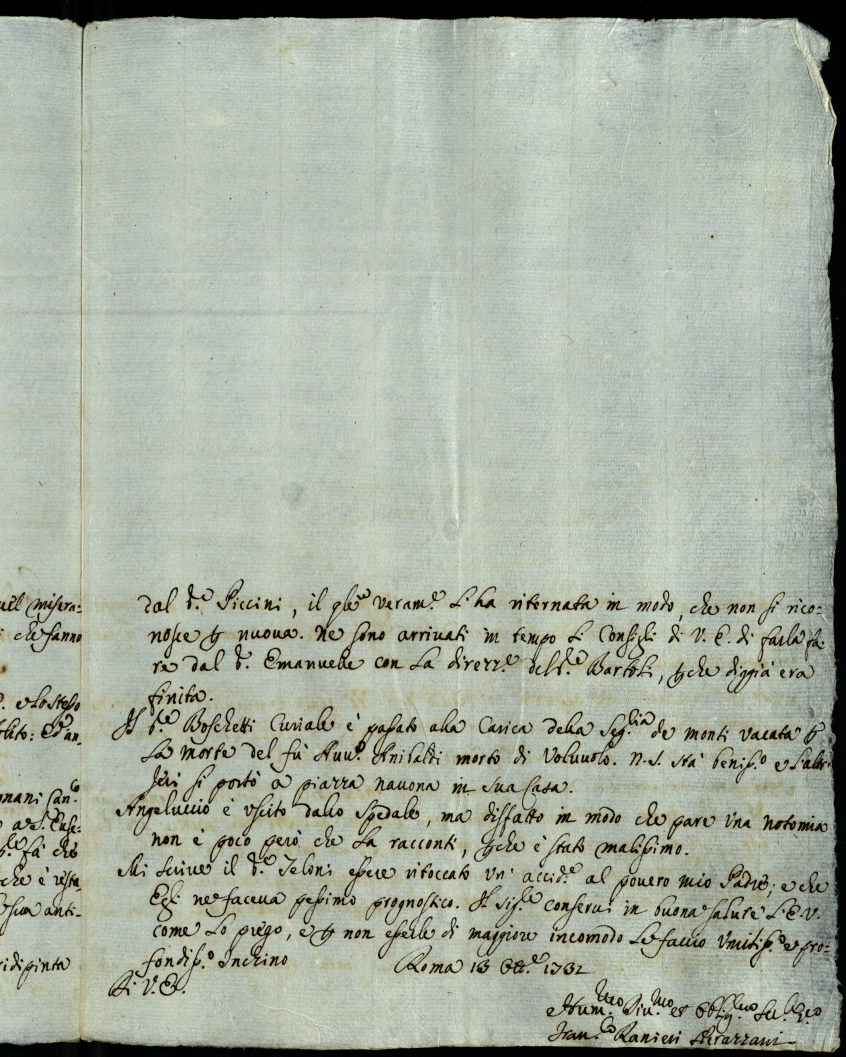 uil misera=
che fanno
e lo stesso
olito: 
gnani 
a S. 
fà che
che è resta
sua anti=
ridipinta
dal S.re Piccini, il qle veram.e l'ha ritornata in modo, che non si rico=
nosce p nuova. Ne sono arrivati in tempo li Consigli di V. E. di farla fa=
re dal S.re Emanuele con la direzz.e del S.re Bartoli, pche diggià era
finita.
Il S.re Boschetti Curiale è passato alla Carica della Seg.ria de monti vacata p
la morte del fù Auu.o Anibaldi morto di Voluuolo. N.S. stà beniss.o e l'altr
Jeri si portò a piazza nauona in sua Casa.
Angeluccio è uscito dallo Spedale, ma disfatto in modo che pare una notomia
non è poco però che la racconti, pche è stato malissimo.
Mi scriue il S.re Teloni essere ritoccato un' accid.e al pouero mio Padre; e che
Egli ne faceua pessimo prognostico. Il Sig.re conserui in buona salute l'E.V.
come lo prego, e p non esserle di maggiore incomodo le faccio Umiliss.o e pro=
fondiss.o Inchino
Roma 13 Ott.e 1732
Di V.E.
Hum.mo Diu.mo et Obblig.mo Se.
Fran.co Ranieri